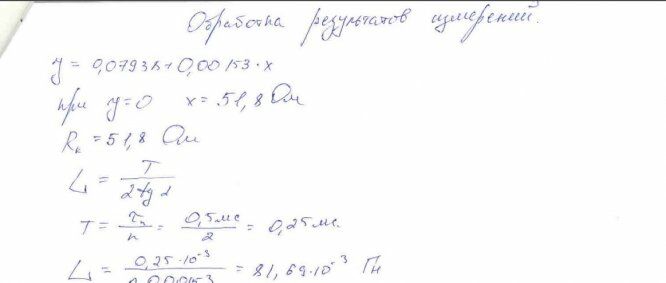 Обработка результатов измерений.
y = 0,07938+0,00153·x
при y=0 x=51,8 Ом
Rk = 51,8 Ом
L = T / 2tg α
T = τn / n = 0,5мс / 2 = 0,25 мс.
L = 0,25·10⁻³ / 0,00153 = 81,69·10⁻³ Гн